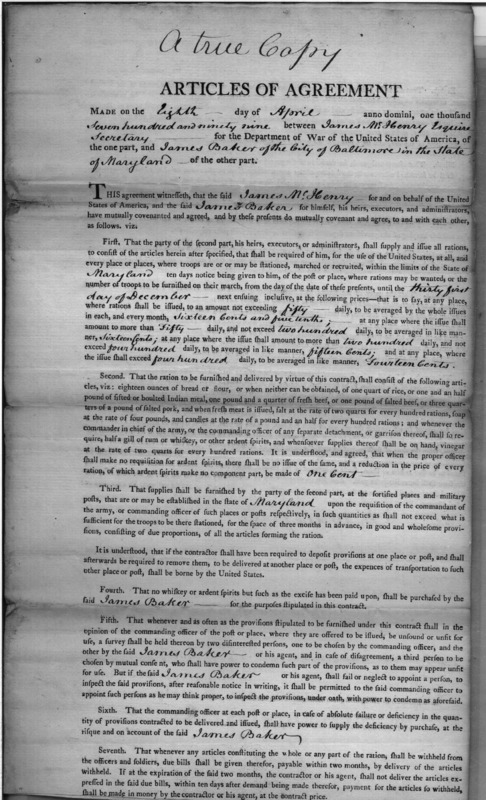 A true Copy
ARTICLES OF AGREEMENT
MADE on the Eighth day of April anno domini, one thousand
Seven hundred and ninety nine between James McHenry Esquire
Secretary for the Department of War of the United States of America, of
the one part, and James Baker of the City of Baltimore in the State
of Maryland of the other part.
THIS agreement witnesseth, that the said James McHenry for and on behalf of the United
States of America, and the said James Baker for himself, his heirs, executors, and administrators,
have mutually covenanted and agreed, and by these presents do mutually covenant and agree, to and with each other,
as follows. viz:
First. That the party of the second part, his heirs, executors, or administrators, shall supply and issue all rations,
to consist of the articles herein after specified, that shall be required of him, for the use of the United States, at all, and
every place or places, where troops are or may be stationed, marched or recruited, within the limits of the State of
Maryland ten days notice being given to him, of the post or place, where rations may be wanted, or the
number of troops to be furnished on their march, from the day of the date of these presents, until the thirty first
day of December next ensuing inclusive, at the following prices—that is to say, at any place,
where rations shall be issued, to an amount not exceeding fifty daily, to be averaged by the whole issues
in each, and every month, Sixteen Cents and five tenths; at any place where the issue shall
amount to more than Fifty daily, and not exceed two hundred daily, to be averaged in like man-
ner, Sixteen Cents; at any place where the issue shall amount to more than two hundred daily, and not
exceed four hundred daily, to be averaged in like manner, fifteen Cents; and at any place, where
the issue shall exceed four hundred daily, to be averaged in like manner, Fourteen Cents.
Second. That the ration to be furnished and delivered by virtue of this contract, shall consist of the following arti-
cles, viz: eighteen ounces of bread or flour, or when neither can be obtained, of one quart of rice, or one and an half
pound of sifted or boulted Indian meal, one pound and a quarter of fresh beef, or one pound of salted beef, or three quar-
ters of a pound of salted pork, and when fresh meat is issued, salt at the rate of two quarts for every hundred rations, soap
at the rate of four pounds, and candles at the rate of a pound and an half for every hundred rations; and whenever the
commander in chief of the army, or the commanding officer of any separate detachment, or garrison thereof, shall re-
quire, half a gill of rum or whiskey, or other ardent spirits, and whensoever supplies thereof shall be on hand, vinegar
at the rate of two quarts for every hundred rations. It is understood, and agreed, that when the proper officer
shall make no requisition for ardent spirits, there shall be no issue of the same, and a reduction in the price of every
ration, of which ardent spirits make no component part, be made of One Cent
Third. That supplies shall be furnished by the party of the second part, at the fortified places and military
posts, that are or may be established in the state of Maryland upon the requisition of the commandant of
the army, or commanding officer of such places or posts respectively, in such quantities as shall not exceed what is
sufficient for the troops to be there stationed, for the space of three months in advance, in good and wholesome provi-
sions, consisting of due proportions, of all the articles forming the ration.
It is understood, that if the contractor shall have been required to deposit provisions at one place or post, and shall
afterwards be required to remove them, to be delivered at another place or post, the expences of transportation to such
other place or post, shall be borne by the United States.
Fourth. That no whiskey or ardent spirits but such as the excise has been paid upon, shall be purchased by the
said James Baker for the purposes stipulated in this contract.
Fifth. That whenever and as often as the provisions stipulated to be furnished under this contract shall in the
opinion of the commanding officer of the post or place, where they are offered to be issued, be unsound or unfit for
use, a survey shall be held thereon by two disinterested persons, one to be chosen by the commanding officer, and the
other by the said James Baker or his agent, and in case of disagreement, a third person to be
chosen by mutual consent, who shall have power to condemn such part of the provisions, as to them may appear unfit
for use. But if the said James Baker or his agent, shall fail or neglect to appoint a person, to
inspect the said provisions, after reasonable notice in writing, it shall be permitted to the said commanding officer to
appoint such persons as he may think proper, to inspect the provisions, under oath, with power to condemn as aforesaid.
Sixth. That the commanding officer at each post or place, in case of absolute failure or deficiency in the quan-
tity of provisions contracted to be delivered and issued, shall have power to supply the deficiency by purchase, at the
risque and on account of the said James Baker
Seventh. That whenever any articles constituting the whole or any part of the ration, shall be withheld from
the officers and soldiers, due bills shall be given therefor, payable within two months, by delivery of the articles
withheld. If at the expiration of the said two months, the contractor or his agent, shall not deliver the articles ex-
pressed in the said due bills, within ten days after demand being made therefor, payment for the articles so withheld,
shall be made in money by the contractor or his agent, at the contract price.